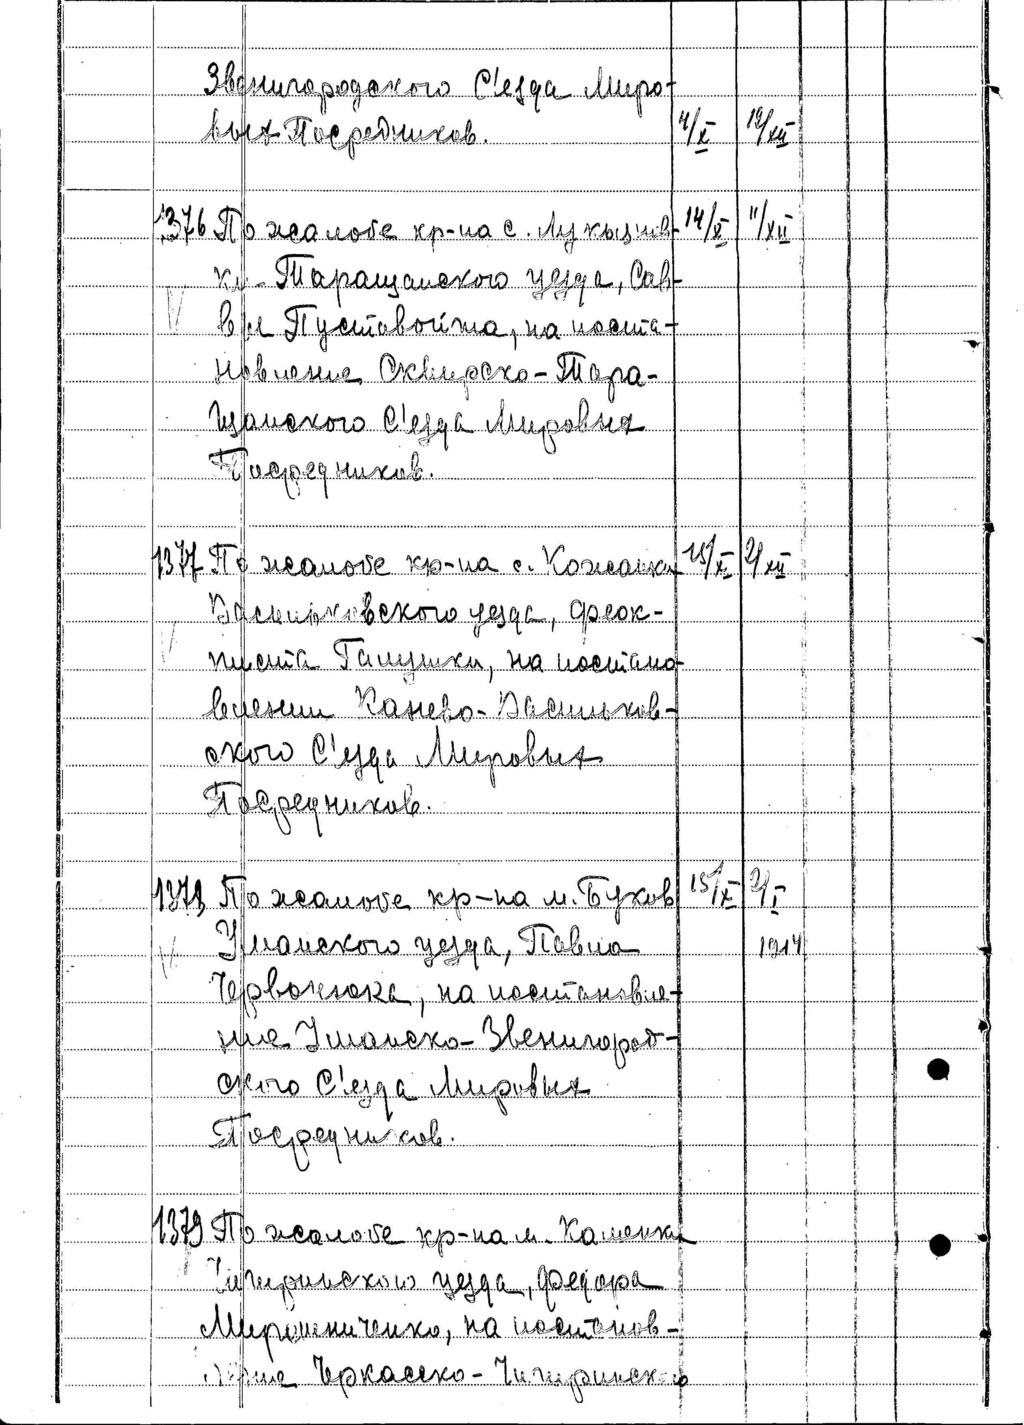 Звенигородского С'езда Миро-
вых Посредников. 4/X 19/XII
1376 По жалобе кр-на с. Лукьянов- 14/X 11/XII
ки Таращанского уезда, Сав-
вы Пустовойта, на поста-
новление Сквирско-Тара-
щанского С'езда Мировых
Посредников.
1377 По жалобе кр-на с. Кожанки 15/X 2/XII
Васильковского уезда, Феок-
тиста Галушки, на постано-
влении Канево-Васильков-
ского С'езда Мировых
Посредников.
1378 По жалобе кр-на м. Буков 15/X 2/I
Уманского уезда, Павла 1914
Червонюка, на постановле-
ние Уманско-Звенигород-
ского С'езда Мировых
Посредников.
1379 По жалобе кр-на м. Каменки
Чигиринского уезда, Федора
Мирошниченко, на постанов-
ление Черкасско-Чигиринского